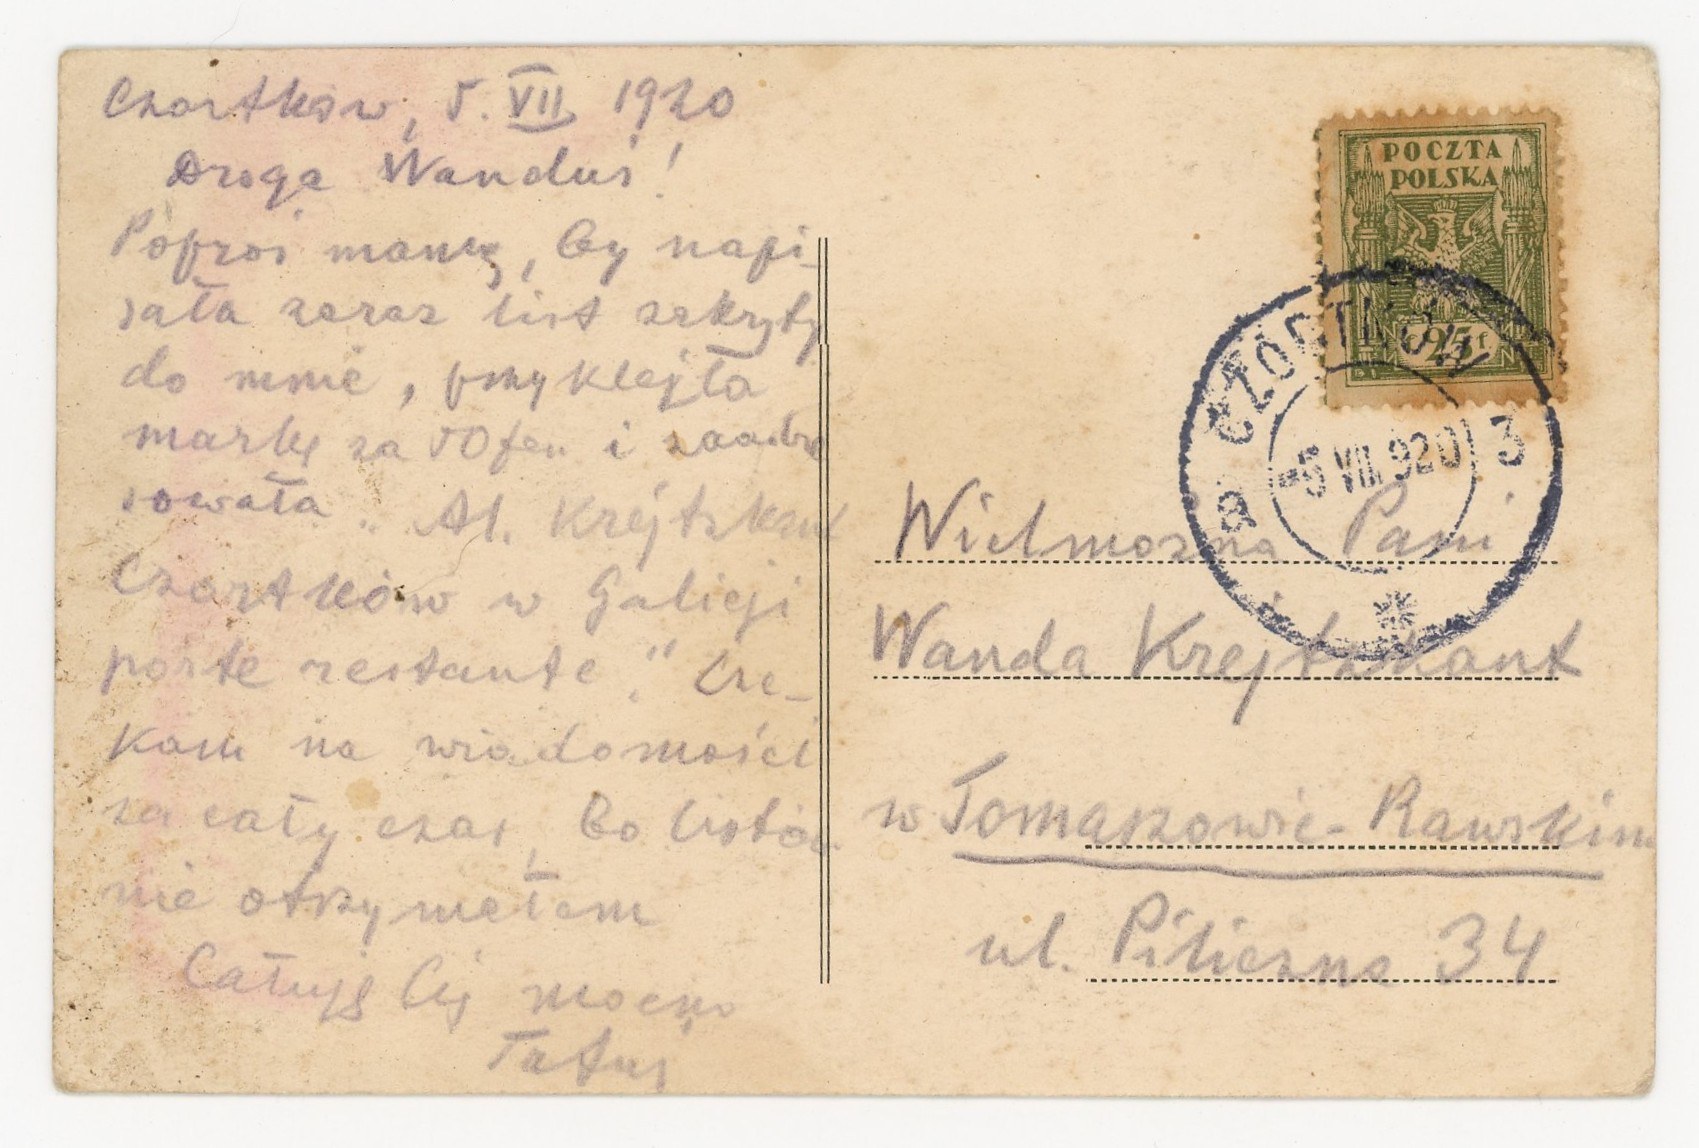 Czortków, 5. VII 1920
Droga Wanduś!
Poproś mamę, by napi-
sała zaraz list zakryty
do mnie, przykleiła
markę za 50 fen i zaadre
sowała „ Al. Krejtzkant
Czortków w Galicji
poste restante." Cze-
kam na wiadomości
za cały czas, bo listów
nie otrzymałem
Całuję Cię mocno
Tatuś
POCZTA
POLSKA
25 f
CZORTKÓW 3
-5 VII 920
Wielmożna Pani
Wanda Krejtzkant
w Tomaszowie-Rawskim
ul. Piliczna 34